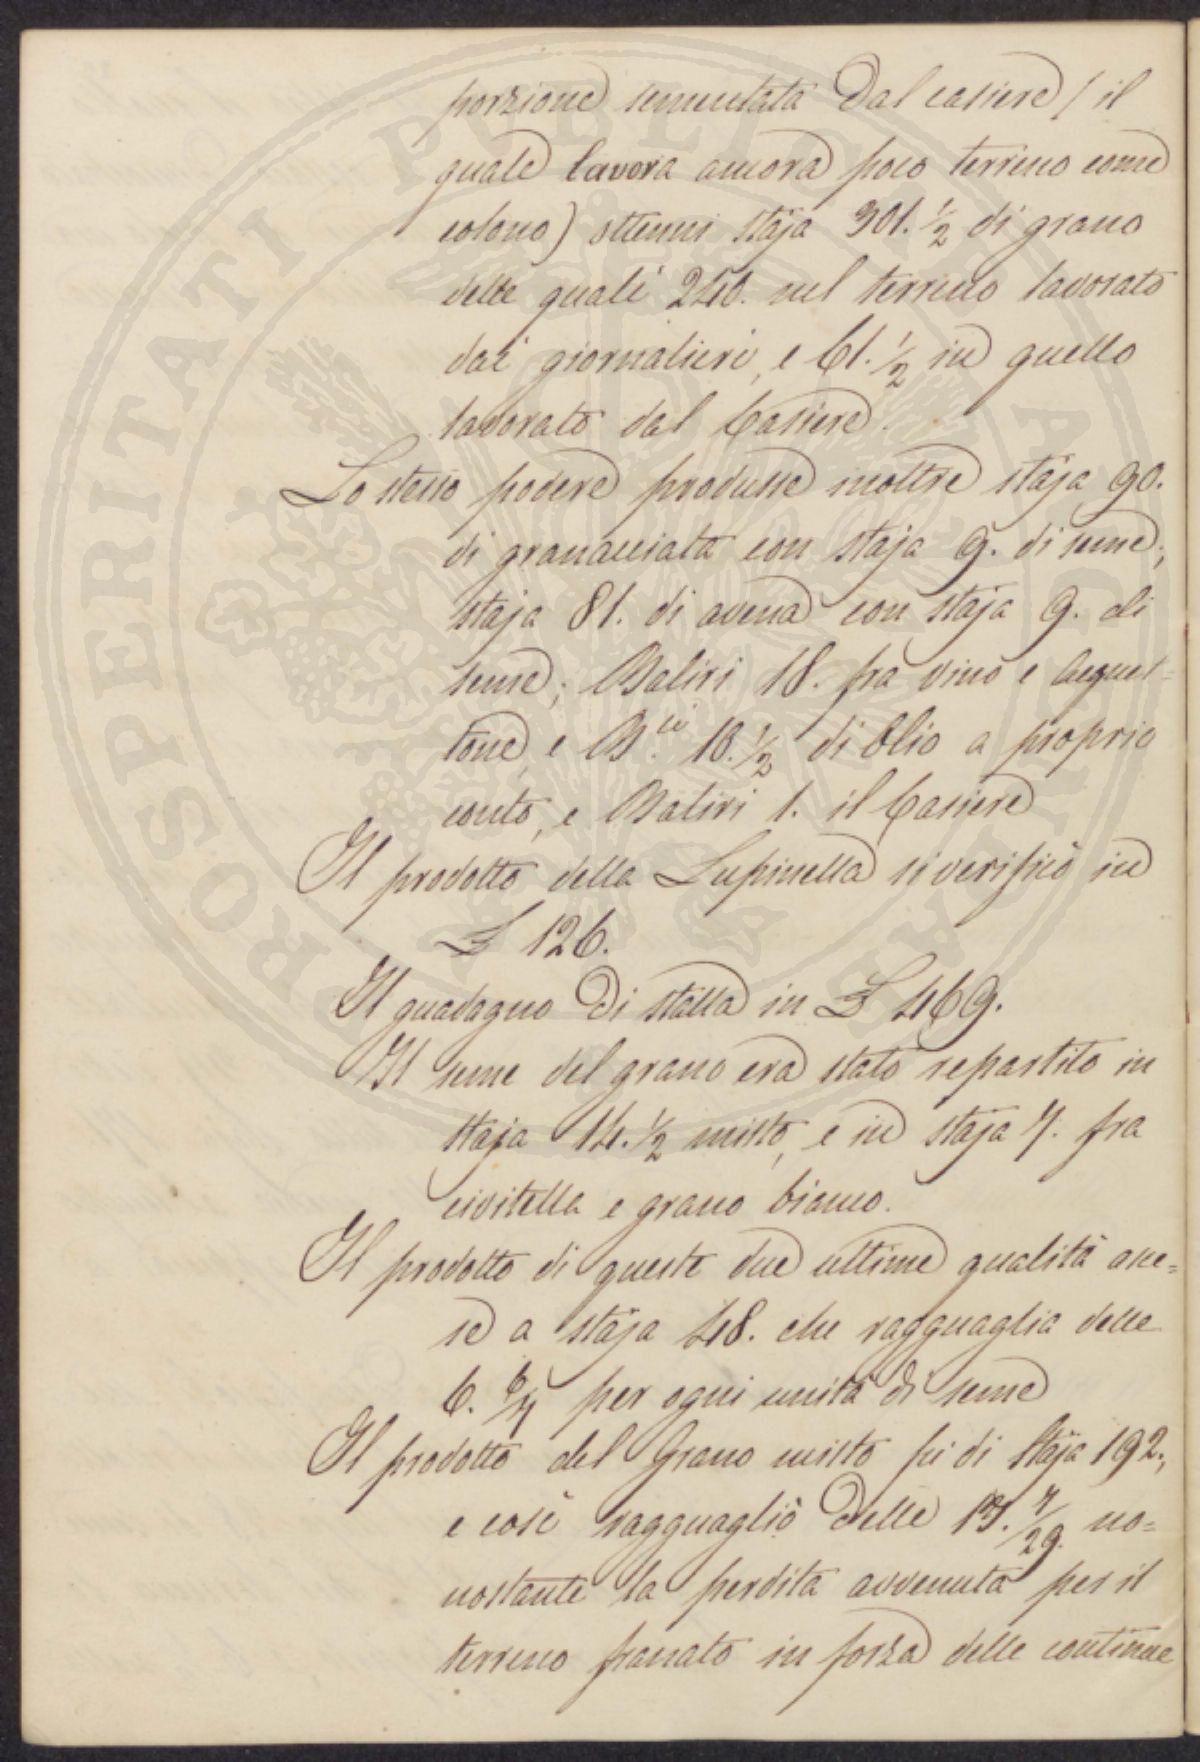 porzione sementata dal casiere / il
quale lavora ancora poco terreno come
colono) ottenni staja 301. ½ di grano
delle quali 240. nel terreno lavorato
dai giornalieri, e 61. ½ in quello
lavorato dal Casiere.
Lo stesso podere produsse inoltre staja 90.
di granacciata con staja 9. di seme;
staja 81. di avena con staja 9. di
seme; Balivi 18. fra vino e acquet=
tone, e B.li 18. ½ di Olio a proprio
conto, e Balivi 1. il Casiere
Il prodotto della Lupinella si verificò in
£ 126.
Il guadagno di stalla in £ 469.
Il seme del grano era stato repartito in
staja 14. ½ misto, e in staja 7. fra
civitella e grano bianco.
Il prodotto di queste due ultime qualità asce=
se a staja 48. che ragguaglia delle
6. 6/7 per ogni unità di seme
Il prodotto del Grano misto fu di Staja 192.,
e così ragguagliò delle 13. 7/29. no=
nostante la perdita avvenuta per il
terreno franato in forza delle continue
PROSPERITATI PUBLICAE AUGENDAE